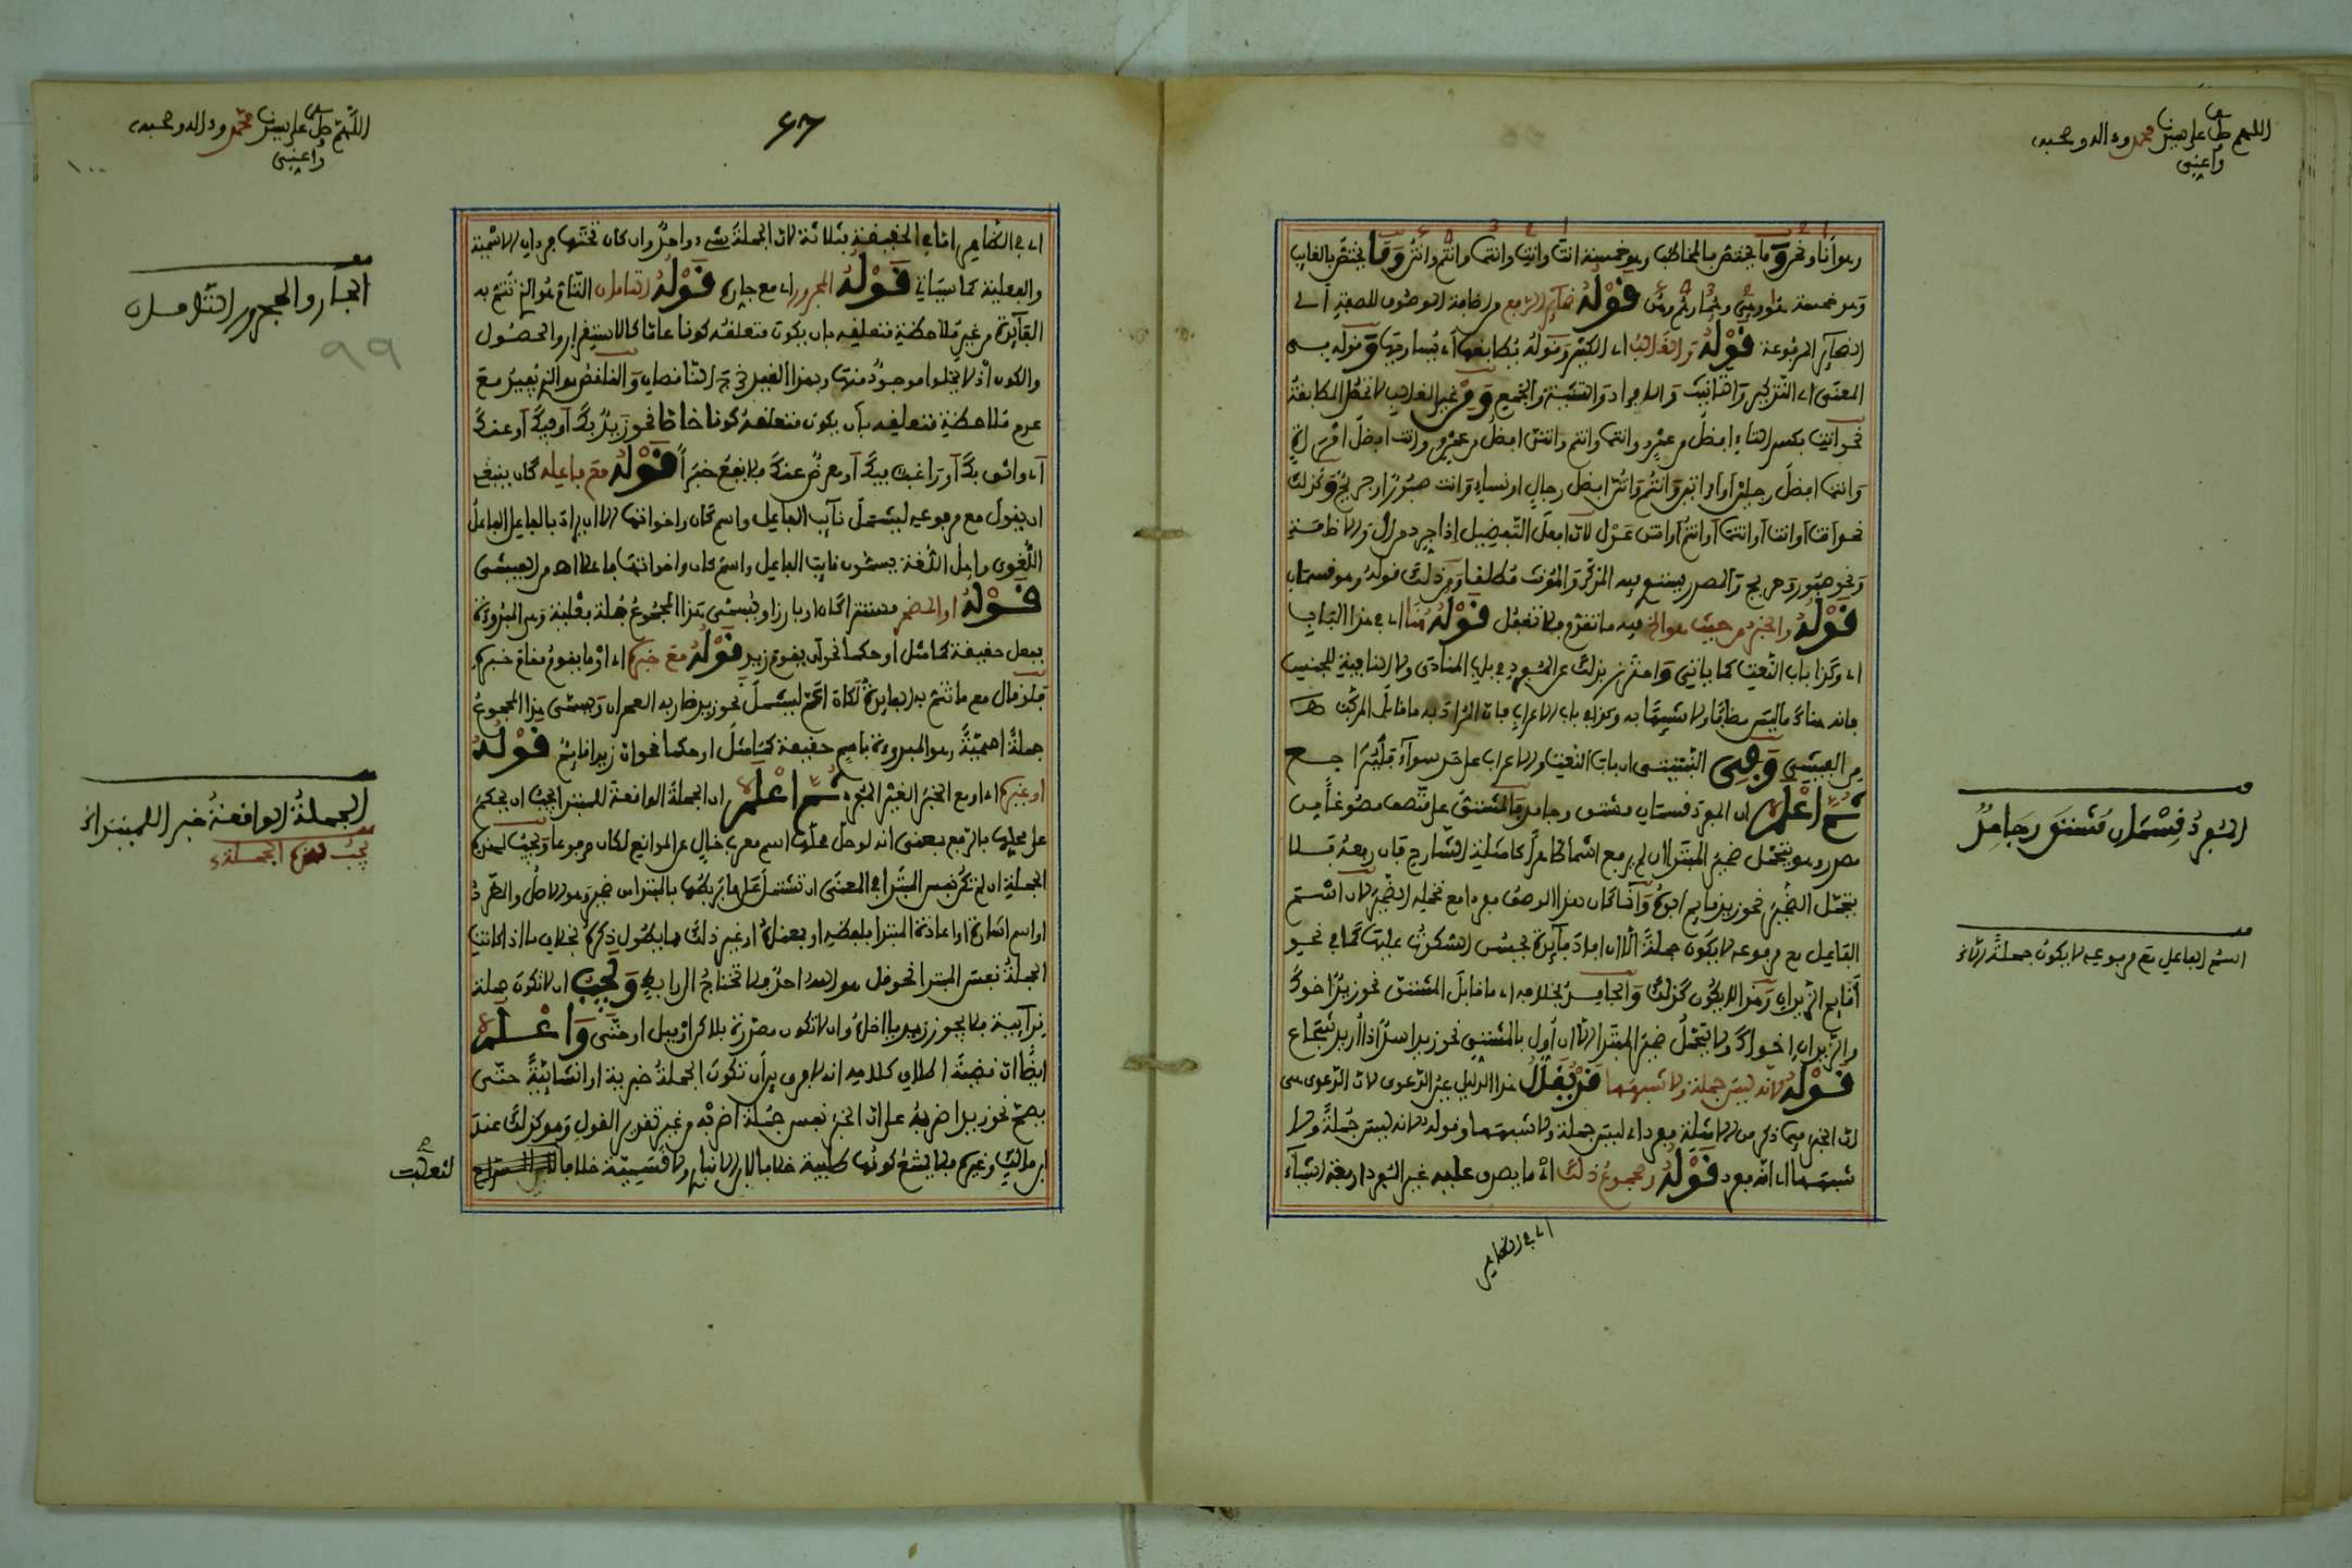 اللهم صل على سيدنا محمد وءاله وصحبه
وأعني
وهو أنا ونحن وما يختص بالمخاطب وهو خمسة أنتَ وأنتِ وأنتما وأنتم وأنتن وما يختص بالغايب
وهو خمسة هو وهي وهما وهم وهن قوله ضمآئر الرفع من إضافة الموصوف للصفة أي
الضمآئر المرفوعة قوله والغالب أي الكثير وقوله يطابقها أي يساويها وقوله في
المعنى أي التذكير والتأنيث والإفراد والتثنية والجمع ومن غير الغالب لا تحصل المطابقة
نحو أنتِ بكسر التاء أفضل من عمرو وأنتما وأنتم وأنتن أفضل من عمرو وأنت أفضل امرأة
وأنتما أفضل رجلين أو امرأتين وأنتم وأنتن أفضل رجال أو نساء وأنت صبور أو جريح وكذلك
نحو أنت أو أنتِ أو أنتما أو أنتم أو أنتن عدل لأن أفعل التفضيل إذا جرد من أل والإضافة
ونحو صبور وجريح والمصدر يستوي فيه المذكر والمؤنث مطلقا ومن ذلك قوله وهو قسمان
قوله والخبر من حيث هو الخ فيه ما تقدم فلا تغفل قوله هنا أي في هذا الباب
أي وكذا باب النعت كما يأتي واحترز بذلك عن المفرد في باب المنادى ولا النافية للجنس
فإنه هناك ما ليس مضافا ولا شبيها به وكذا في باب الإعراب فإن المراد به ما قابل المركب اهـ
من الفيشي وفي الشبيتي أن باب النعت والإعراب على حد سوآء فليراجع
ثم اعلم أن المفرد قسمان مشتق وجامد والمشتق على متصف مصوغا من
مصدر وهو يتحمل ضمير المبتدإ إن لم يرفع اسما ظاهرا كأمثلة الشارح فإن رفعه فلا
يتحمل الضمير نحو زيد قايم أبوه وإنما كان هذا الوصف مفردا مع تحمله الضمير لأن اسم
الفاعل مع مرفوعه لا يكون جملة إلا إن أفاد فآئدة يحسن السكوت عليها كما في نحو
أقايم الزيدان وهذا لا يكون كذلك والجامد بخلافه أي ما قابل المشتق نحو زيد أخوك
والزيدان أخواك ولا يتحمل ضمير المبتدإ إلا إن أول بالمشتق نحو زيد أسد إذا أريد شجاع
قوله لأنه ليس جملة ولا شبهها قد يقال هذا الدليل عين الدعوى لأن الدعوى هي
أن الخبر فيما ذكر من الأمثلة مفرد أي ليس جملة ولا شبهها وقوله لأنه ليس جملة ولا
شبهها أي أنه مفرد قوله ومجموع ذلك أي ما يصدق عليه غير المفرد أربعة أشيآء
أي في الظاهر
المفرد قسمان مشتق وجامد
اسم الفاعل مع مرفوعه لا يكون جملة إلا
اللهم صل على سيدنا محمد وءاله وصحبه
وأعني
١٠٠
٦٨
99
أي في الظاهر أما في الحقيقة فثلاثة لأن الجملة شيء واحد وإن كان تحتها فردان الاسمية
والفعلية كما سيأتي قوله المجرور أي مع جاره قوله التامان التام هو الذي تتم به
الفآئدة من غير ملاحظة متعلقه بأن يكون متعلقه كونا عاما كالاستقرار والحصول
والكون إذ لا يخلو موجود منها وبهذا القيد خرج الناقصان والناقص هو الذي يفيد مع
عدم ملاحظة متعلقه بأن يكون متعلقه كونا خاصا نحو زيد بك أو فيك أو عنك
أي واثق بك أو راغب فيك أو معرض عنك فلا يقع خبرا قوله مع فاعله كان ينبغي
أن يقول مع مرفوعه ليشمل نآئب الفاعل واسم كان وأخواتها إلا أن يراد بالفاعل الفاعل
اللغوي وأهل اللغة يسمون نايب الفاعل واسم كان وأخواتها فاعلا اهـ من الفيشي
قوله أو المضمر مستترا كان أو بارزا ويسمى هذا المجموع جملة فعلية وهي المبدوءة
بفعل حقيقة كما مثل أو حكما نحو أن يقوم زيد قوله مع خبره أي أو ما يقوم مقام خبره
فلو قال مع ما تتم به الفايدة لكان أتم ليشمل نحو زيد ضاربه العمران ويسمى هذا المجموع
جملة اسمية وهو المبدوءة باسم حقيقة كما مثل أو حكما نحو إن زيدا قايم قوله
أو غيره أي أو مع الخبر الغير ثم اعلم أن الجملة الواقعة للمبتدإ يجب أن يحكم
على محلها بالرفع بمعنى أنه لو حل محلها اسم معرب خال عن الموانع لكان مرفوعا ويجب لهذه
الجملة إن لم تكن نفس المبتدإ في المعنى أن تشتمل على ما يربطها بالمبتدإ من ضمير وهو الأصل والظفر
أو اسم إشارة أو إعادة المبتدإ بلفظه أو بمعناه أو غير ذلك مما يطول ذكره بخلاف ما إذا كانت
الجملة نفس المبتدإ نحو قل هو الله أحد فلا تحتاج إلى رابط ويجب أن لا تكون جملة
ندآئية فلا يجوز زيد يا أخاه وأن لا تكون مصدرة بلاكن أو بل أو حتى واعلم
أيضا أن قضية إطلاق كلامه أنه لا فرق بين أن تكون الجملة خبرية أو إنشائية حتى
يصح نحو زيد اضربه على أن الخبر نفس جملة اضربه من غير تقدير القول وهو كذلك عند
ابن مالك وغيره فلا يمنع كونها طلبية خلافا لابن الأنباري ولا قسمية خلافا
لثعلب
الجار والمجرور التامان
الجملة الواقعة خبرا للمبتدإ
يجب لهذه الجملة